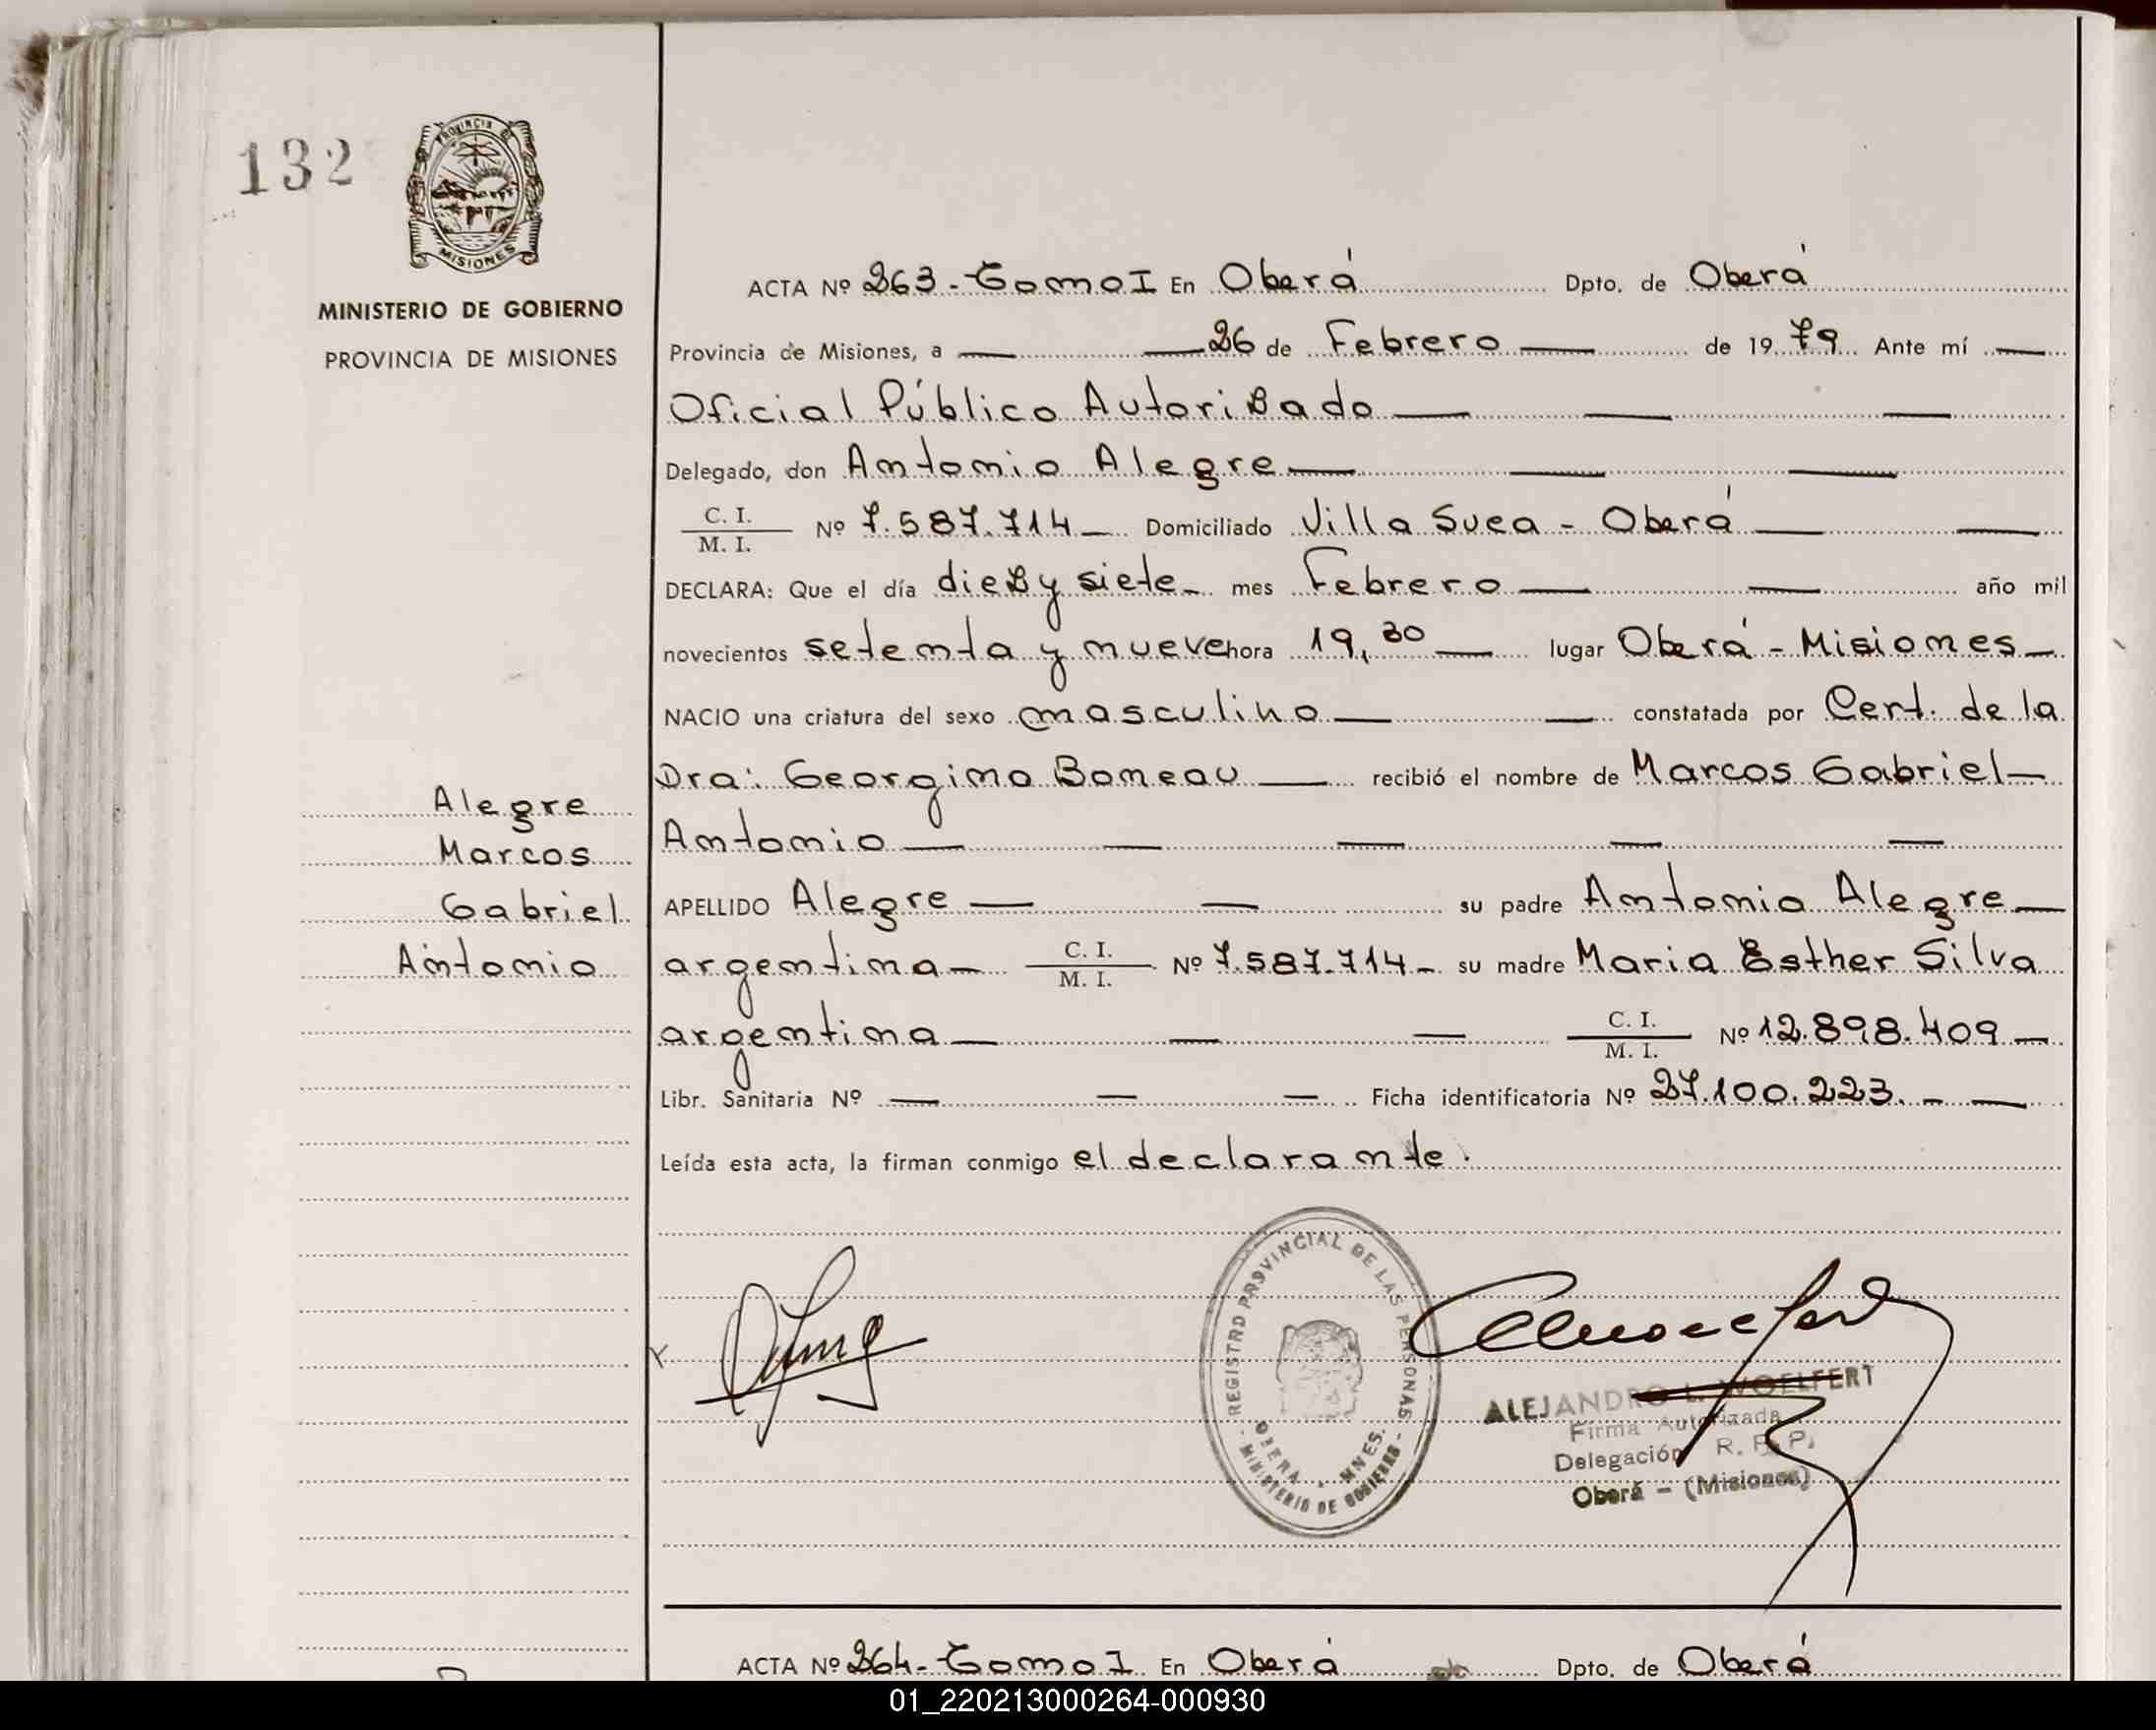 132
PROVINCIA DE
MISIONES
MINISTERIO DE GOBIERNO
PROVINCIA DE MISIONES
Alegre
Marcos
Gabriel
Antonio
ACTA Nº 263 - Tomo I En Oberá Dpto. de Oberá
Provincia de Misiones, a — — 26 de Febrero — de 19 79 Ante mí —
Oficial Público Autorizado — — —
Delegado, don Antonio Alegre — — —
C. I.
M. I. Nº 7.587.714 — Domiciliado Villa Svea - Oberá — —
DECLARA: Que el día diez y siete — mes Febrero — — año mil
novecientos setenta y nueve hora 19,30 — lugar Oberá - Misiones —
NACIO una criatura del sexo masculino — — constatada por Cert. de la
Dra: Georgina Boneau — recibió el nombre de Marcos Gabriel —
Antonio — — — — —
APELLIDO Alegre — — su padre Antonio Alegre —
argentina — C. I.
M. I. Nº 7.587.714 — su madre Maria Esther Silva
argentina — — — C. I.
M. I. Nº 12.898.409 —
Libr. Sanitaria Nº — — — Ficha identificatoria Nº 27.100.223. - —
Leída esta acta, la firman conmigo el declarante.
REGISTRO PROVINCIAL DE LAS PERSONAS
OBERA - MNES.
- MINISTERIO DE GOBIERNO -
ALEJANDRO L. WOELFERT
Firma Autorizada
Delegación R. P. P.
Oberá - (Misiones)
ACTA Nº 264 - Tomo I En Oberá Dpto. de Oberá
01_220213000264-000930